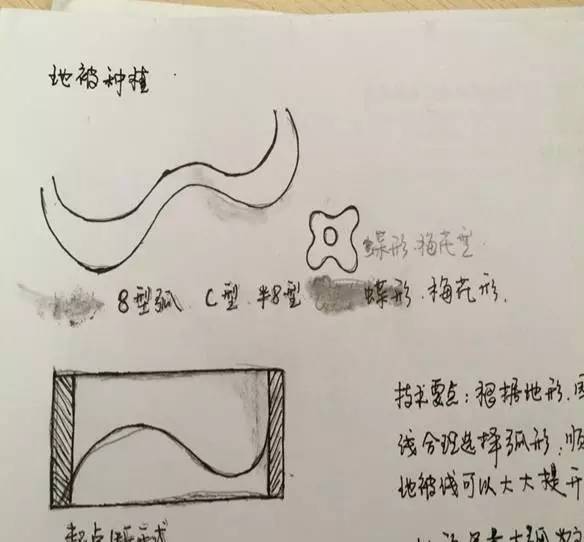 地被种植
蝶形.梅花型
8型弧.C型.半8型 蝶形.梅花形.
技术要点:根据地形.因
线合理选择弧形,顺
地被线可以大大提升